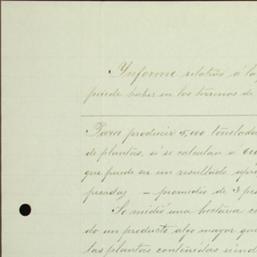 Informe relativo á la
puede haber en los terrenos de
Para producir 5,000 tonelada
de plantas, si se calculan á
que puede ser un resultado
pesadas — promedio de 3 pes
Se midió una hectárea
do un producto algo mayor que
las plantas contenidas